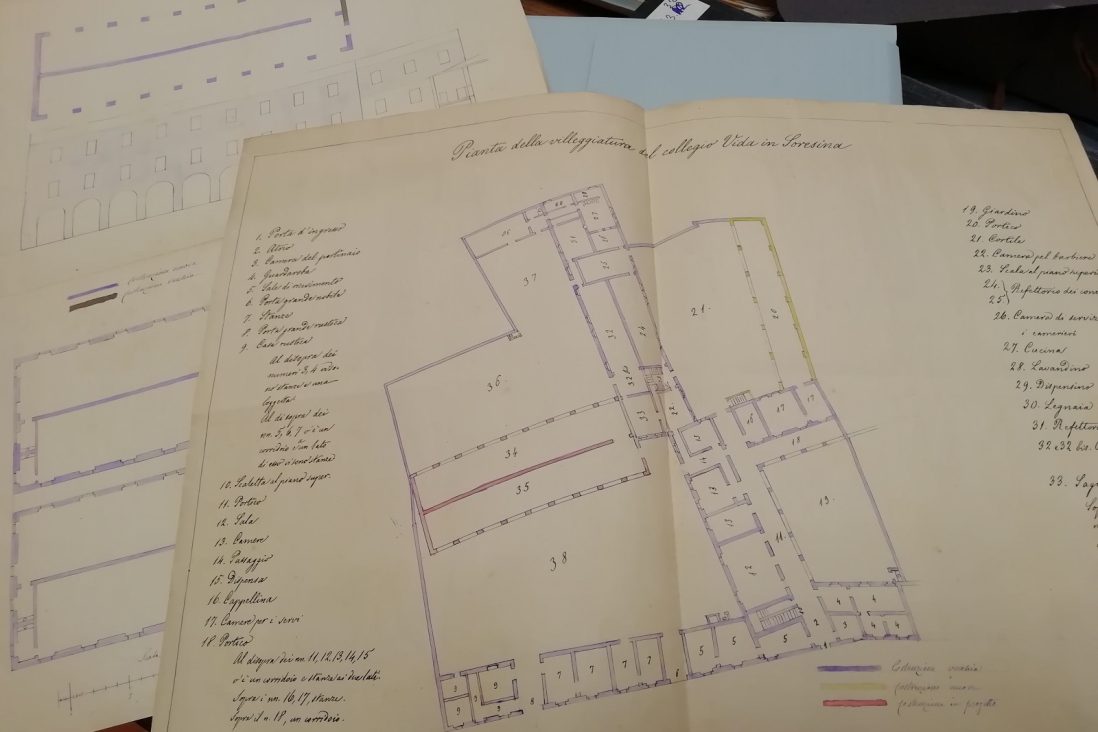 Pianta della villeggiatura del collegio Vida in Soresina
1. Porta d'ingresso
2. Atrio
3. Camera del portinaio
4. Guardaroba
5. Sale di ricevimento
6. Porta grande nobile
7. Stanze
8. Porta grande rustica
9. Casa rustica
Al disopra dei
numeri 3, 4
stanze e una
loggetta
Al disopra dei
nn. 5, 6, 7 v'è un
corridoio e un lato
di stanze
10. Scaletta al piano super.
11. Portico
12. Sala
13. Camere
14. Passaggio
15. Dispensa
16. Cappellina
17. Camere per i servi
18. Portico
Al disopra dei nn. 11, 12, 13, 14, 15
v'è un corridoio e stanze ai due lati.
Sopra i nn. 16, 17, stanze.
Sopra il n. 18, un corridoio.
19. Giardino
20. Portico
21. Cortile
22. Camera pel barbiere
23. Scala al piano superi
24. } Refettorio dei con
25.
26. Camera di serviz
i camerieri
27. Cucina
28. Lavandino
29. Dispensino
30. Legnaia
31. Refettor
32 e 32 bis.
33.
36
37
21
20
25
24
32
32 bis
33
22
34
35
38
16
17
17
18
19
15
14
13
13
12
11
4
4
3
4
4
2
5
5
5
6
7
7
7
7
8
9
9
9
9
9
Costruzione vecchia
Costruzione nuova
Costruzione in progetto
costruzione nuova
costruzione vecchia
Scala